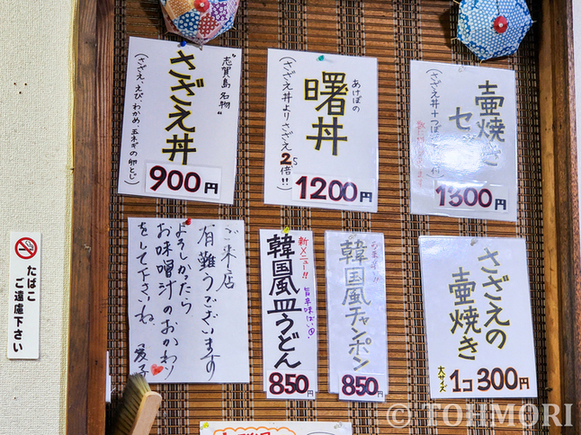 "志賀島名物"
さざえ丼
(さざえ、えび、わかめ、玉ネギの卵とじ)
900円
あけぼの
曙丼
(さざえ丼よりさざえ2.5倍!!)
1200円
壷焼き
セ
(さざえ丼+つぼ
1300円
たばこ
ご遠慮下さい
ご来店
有難うございます
よろしかたら
お味噌汁のおかわり
をして下さいね
新メニュー!!
韓国風皿うどん
850円
韓国風チャンポン
850円
さざえの
壷焼き
大サイズ
1コ300円
© TOHMORI